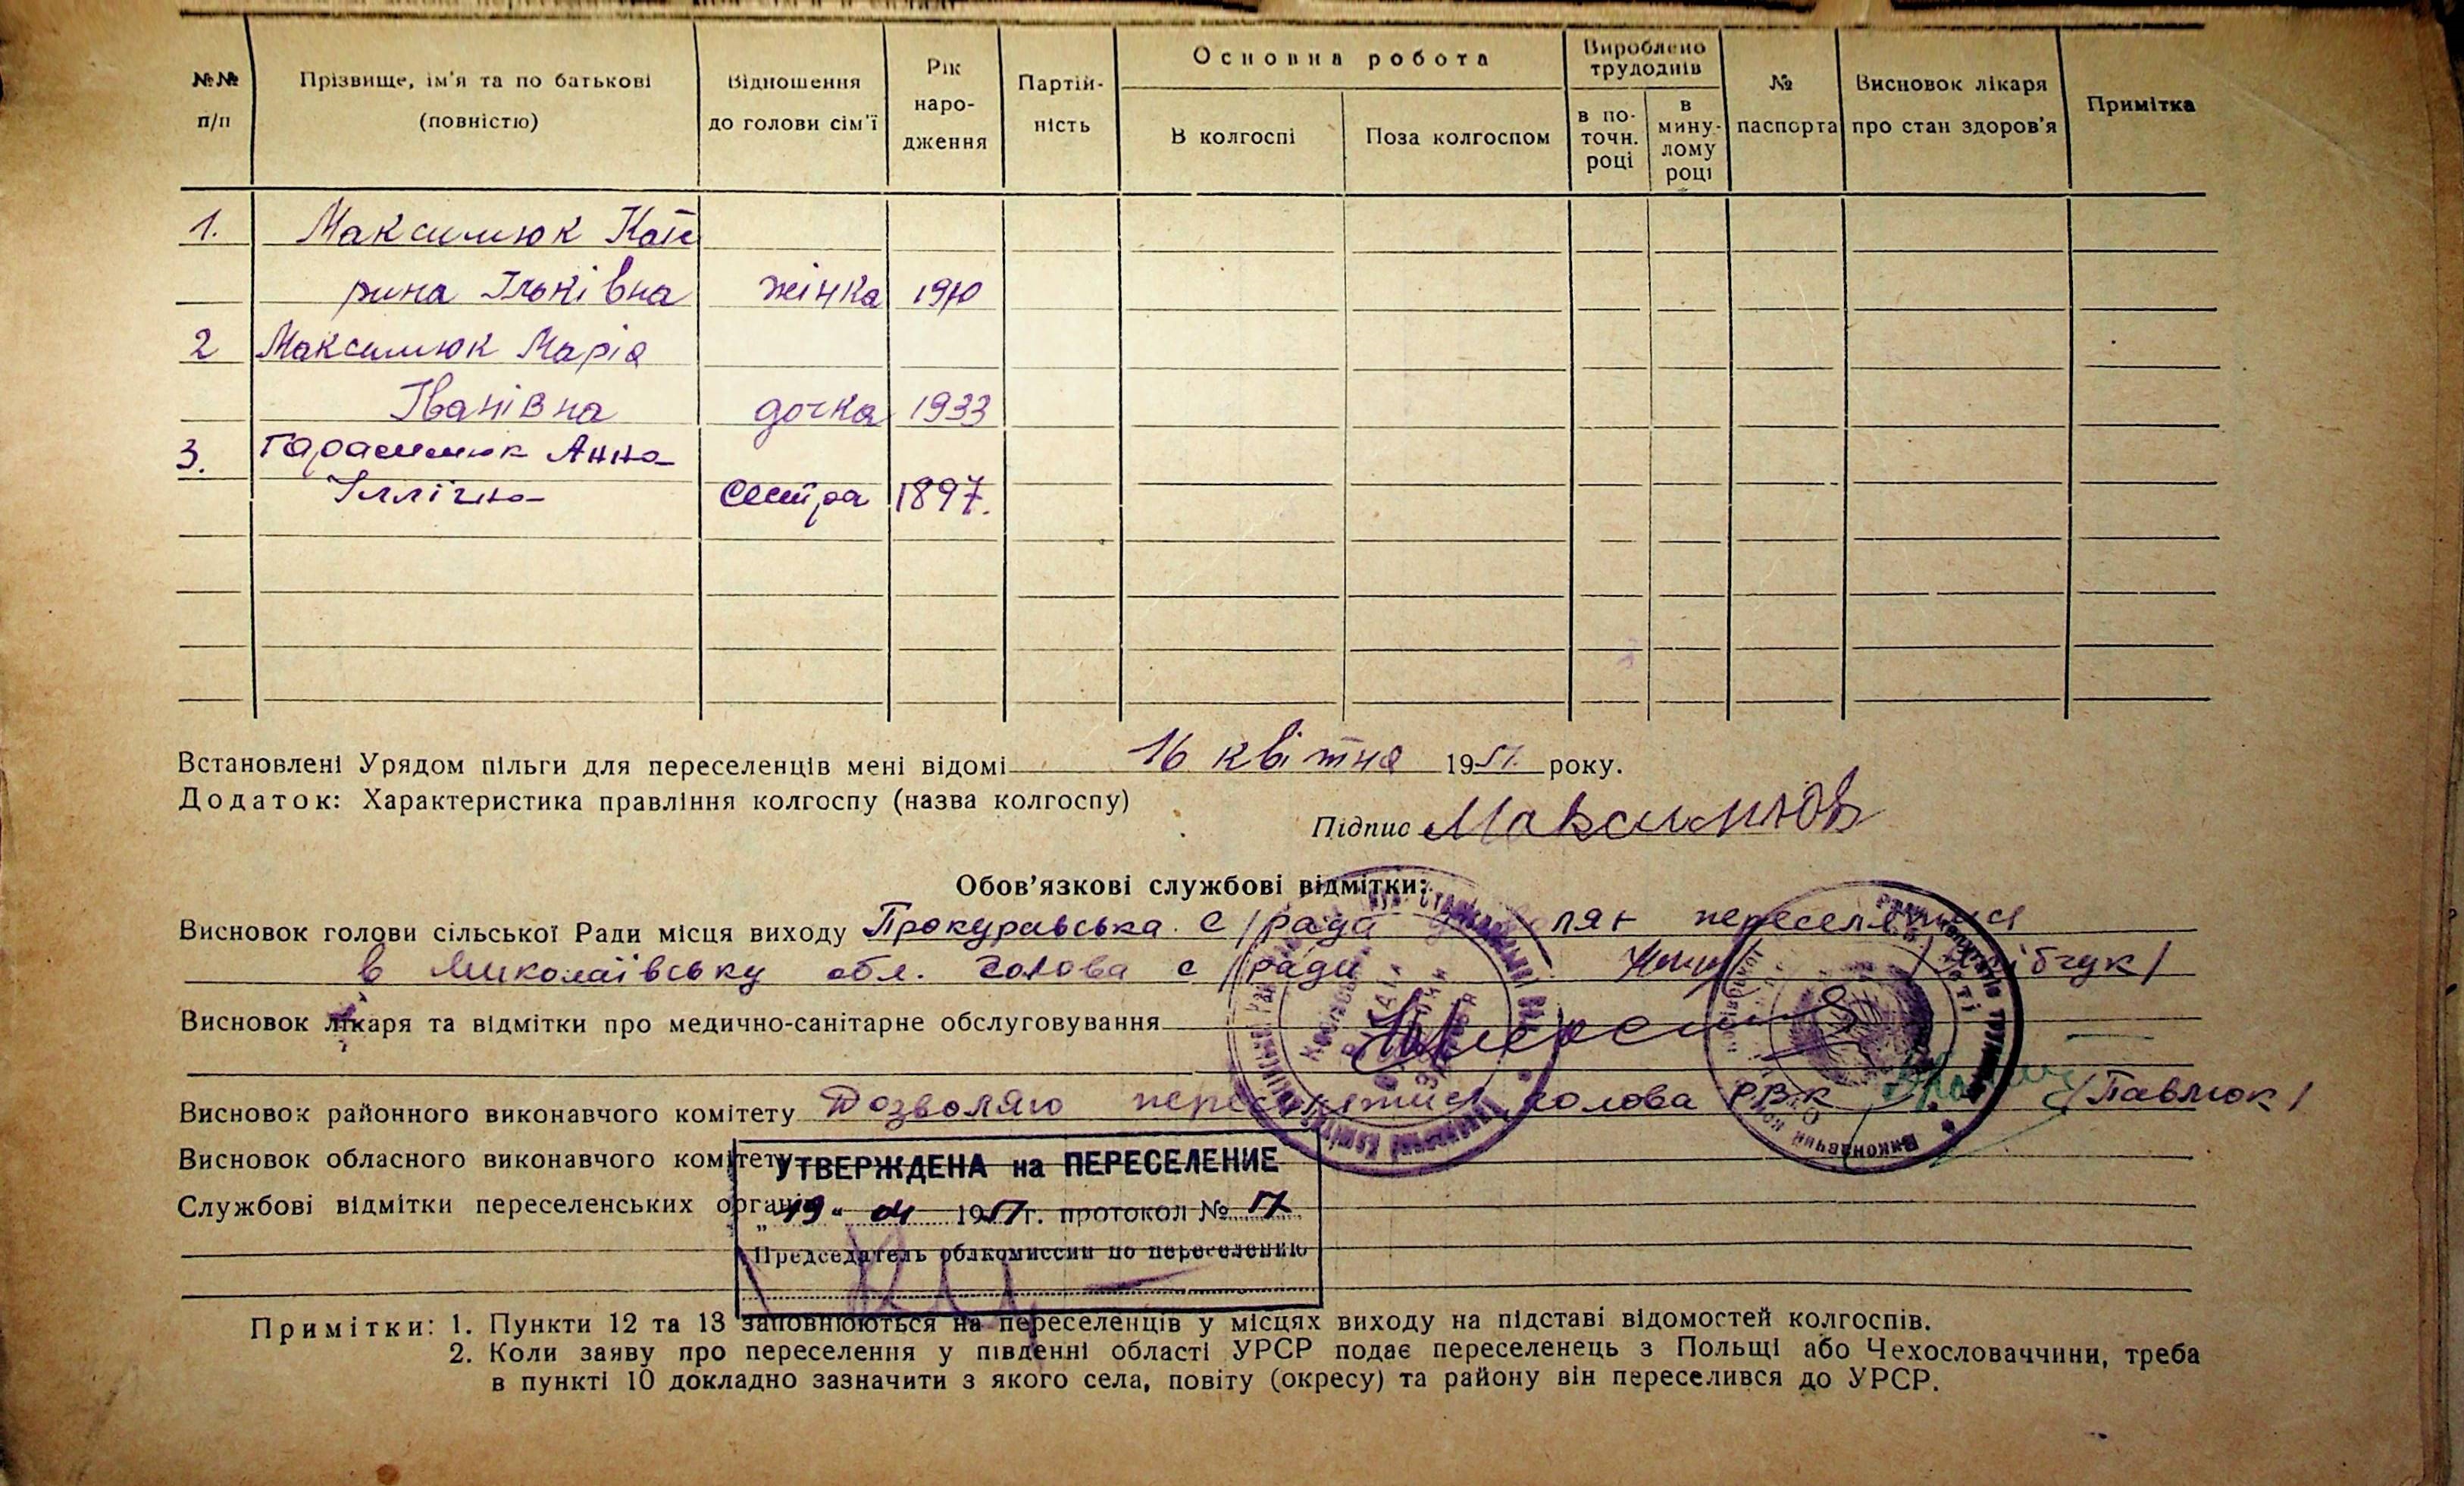 №№ п/п
Прізвище, ім'я та по батькові (повністю)
Відношення до голови сім'ї
Рік наро- дження
Партій- ність
Основна робота
В колгоспі
Поза колгоспом
Вироблено трудоднів
в по- точн. році
в мину- лому році
№ паспорта
Висновок лікаря про стан здоров'я
Примітка
1. Максимюк Кате
рина Ільківна жінка 1910
2 Максимюк Марія
Іванівна дочка 1933
3. Гарасимюк Анна
Іллічна сестра 1897.
Встановлені Урядом пільги для переселенців мені відомі 16 квітня 1951 року.
Додаток: Характеристика правління колгоспу (назва колгоспу)
Підпис Максимюк
Обов'язкові службові відмітки:
Висновок голови сільської Ради місця виходу Прокуравська с/рада переселитися
в Миколаївську обл. Голова с/ради
Висновок лікаря та відмітки про медично-санітарне обслуговування
Висновок районного виконавчого комітету Дозволяю переселитись голова РВК /Павлюк/
Висновок обласного виконавчого комітету
УТВЕРЖДЕНА на ПЕРЕСЕЛЕНИЕ
Службові відмітки переселенських органів
„19" 04 1951 г. протокол № 17
Председатель облкомиссии по переселению
Примітки: 1. Пункти 12 та 13 заповнюються на переселенців у місцях виходу на підставі відомостей колгоспів.
2. Коли заяву про переселення у південні області УРСР подає переселенець з Польщі або Чехословаччини, треба
в пункті 10 докладно зазначити з якого села, повіту (окресу) та району він переселився до УРСР.